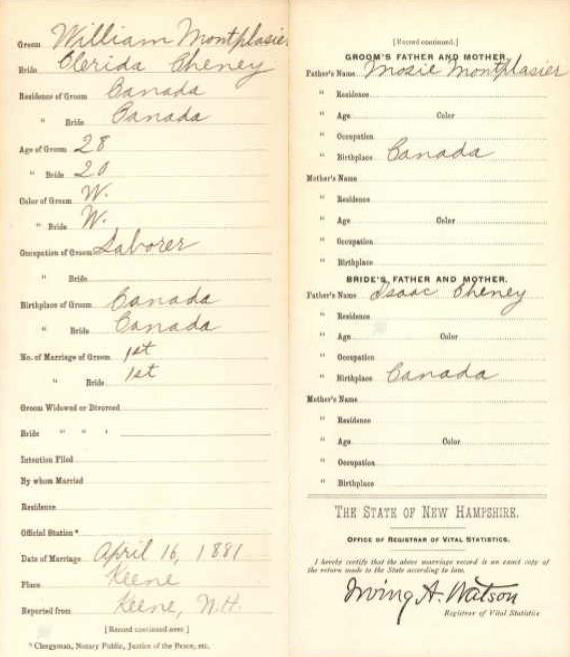 Groom William Montplasier
Bride Clerida Cheney
Residence of Groom Canada
" Bride Canada
Age of Groom 28
" Bride 20
Color of Groom W.
" Bride W.
Occupation of Groom Laborer
" Bride
Birthplace of Groom Canada
" Bride Canada
No. of Marriage of Groom 1st
" Bride 1st
Groom Widowed or Divorced
Bride " " "
Intention Filed
By whom Married
Residence
Official Station *
Date of Marriage April 16, 1881
Place Keene
Reported from Keene, N.H.
[Record continued over]
* Clergyman, Notary Public, Justice of the Peace, etc.
[Record continued.]
GROOM'S FATHER AND MOTHER.
Father's Name Mosie Montplasier
" Residence
" Age Color
" Occupation
" Birthplace Canada
Mother's Name
" Residence
" Age Color
" Occupation
" Birthplace
BRIDE'S FATHER AND MOTHER.
Father's Name Isaac Cheney
" Residence
" Age Color
" Occupation
" Birthplace Canada
Mother's Name
" Residence
" Age Color
" Occupation
" Birthplace
THE STATE OF NEW HAMPSHIRE.
OFFICE OF REGISTRAR OF VITAL STATISTICS.
I hereby certify that the above marriage record is an exact copy of
the return made to the State according to law.
Irving A. Watson
Registrar of Vital Statistics